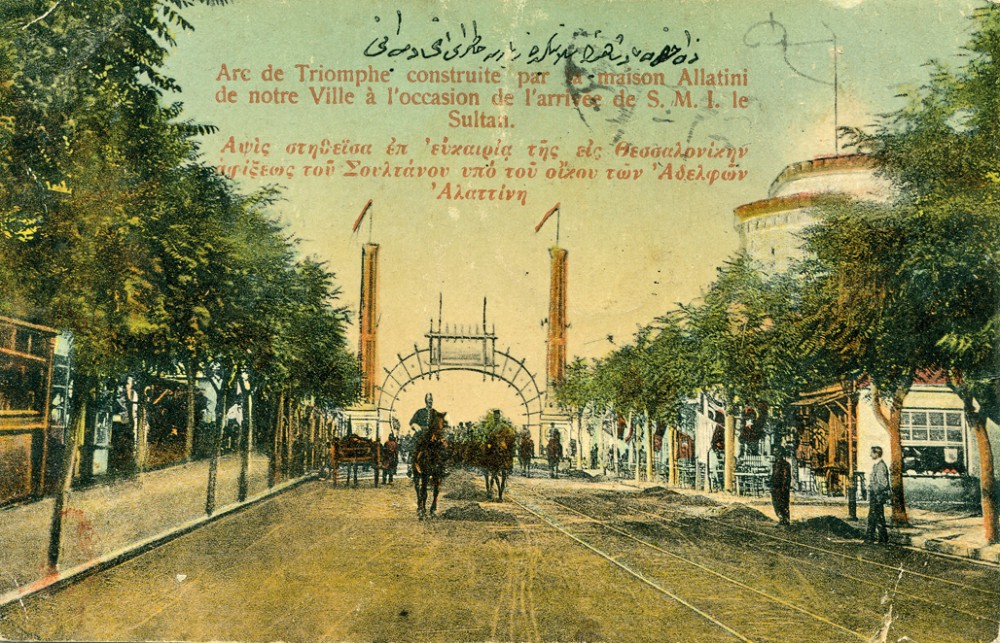 Arc de Triomphe construite par la maison Allatini
de notre Ville à l'occasion de l'arrivée de S. M. I. le
Sultan.
Αψὶς στηθεῖσα ἐπ 'εὐκαιρίᾳ τῆς εἰς Θεσσαλονίκην
ἀφίξεως τοῦ Σουλτάνου ὑπὸ τοῦ οἴκου τῶν 'Αδελφῶν
'Αλαττίνη